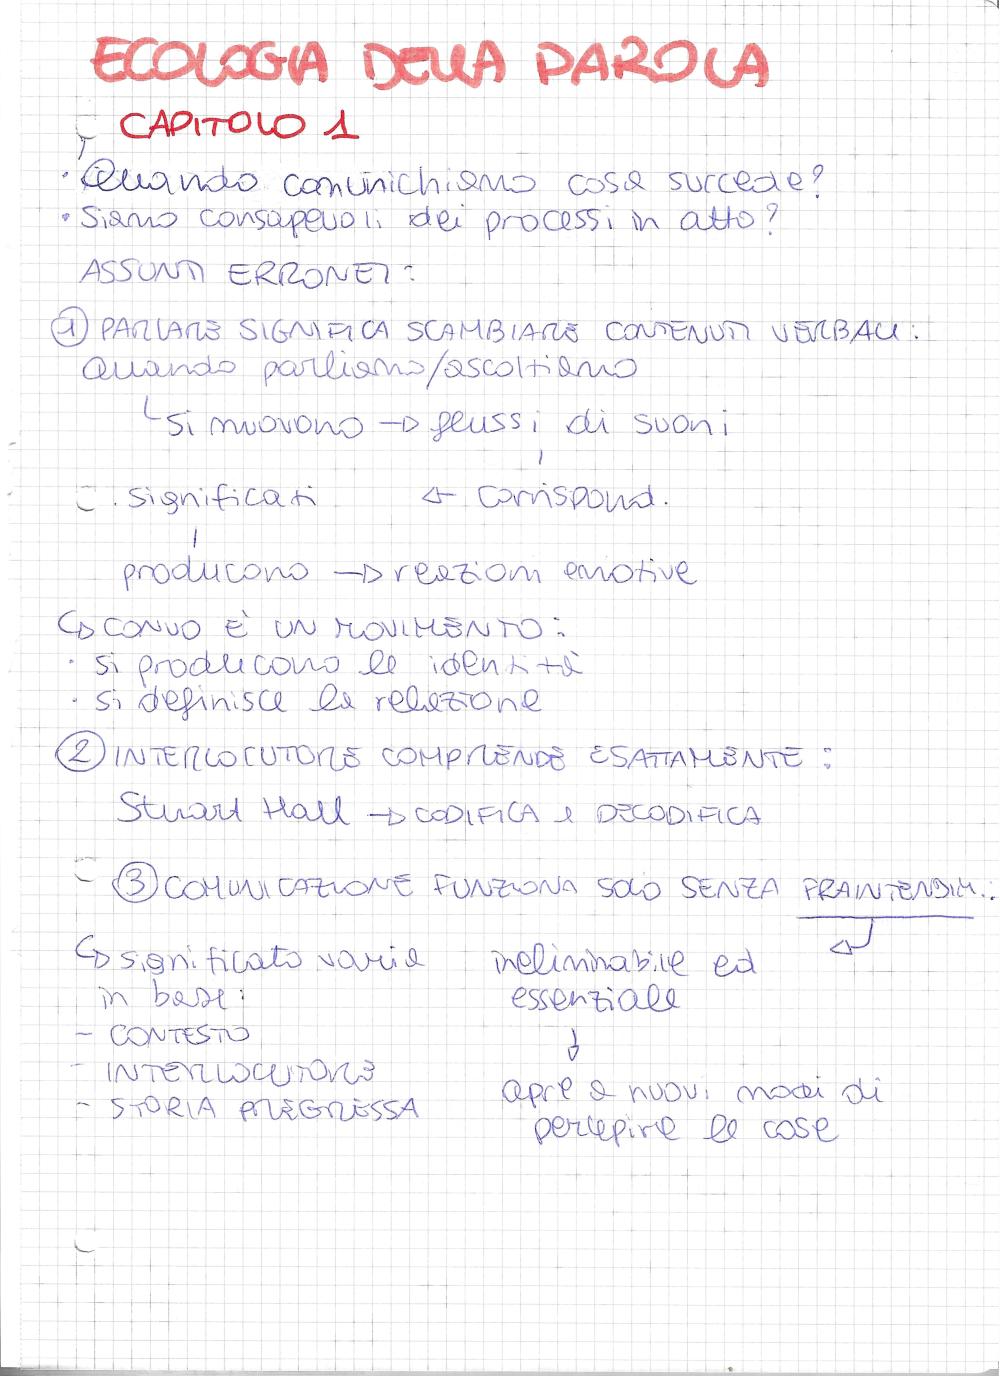 ECOLOGIA DELLA PAROLA
CAPITOLO 1
• Quando comunichiamo cosa succede?
• Siamo consapevoli dei processi in atto?
ASSUNTI ERRONEI:
① PARLARE SIGNIFICA SCAMBIARE CONTENUTI VERBALI:
Quando parliamo/ascoltiamo
↳ si muovono → flussi di suoni
significati ← corrispond.
producono → reazioni emotive
↳ CONVO È UN MOVIMENTO:
• si producono le identità
• si definisce la relazione
② INTERLOCUTORE COMPRENDE ESATTAMENTE:
Stuart Hall → CODIFICA e DECODIFICA
③ COMUNICAZIONE FUNZIONA SOLO SENZA FRAINTENDIM.:
↳ significato varia
in base:
- CONTESTO
- INTERLOCUTORE
- STORIA PREGRESSA
ineliminabile ed
essenziale
↓
apre a nuovi modi di
percepire le cose